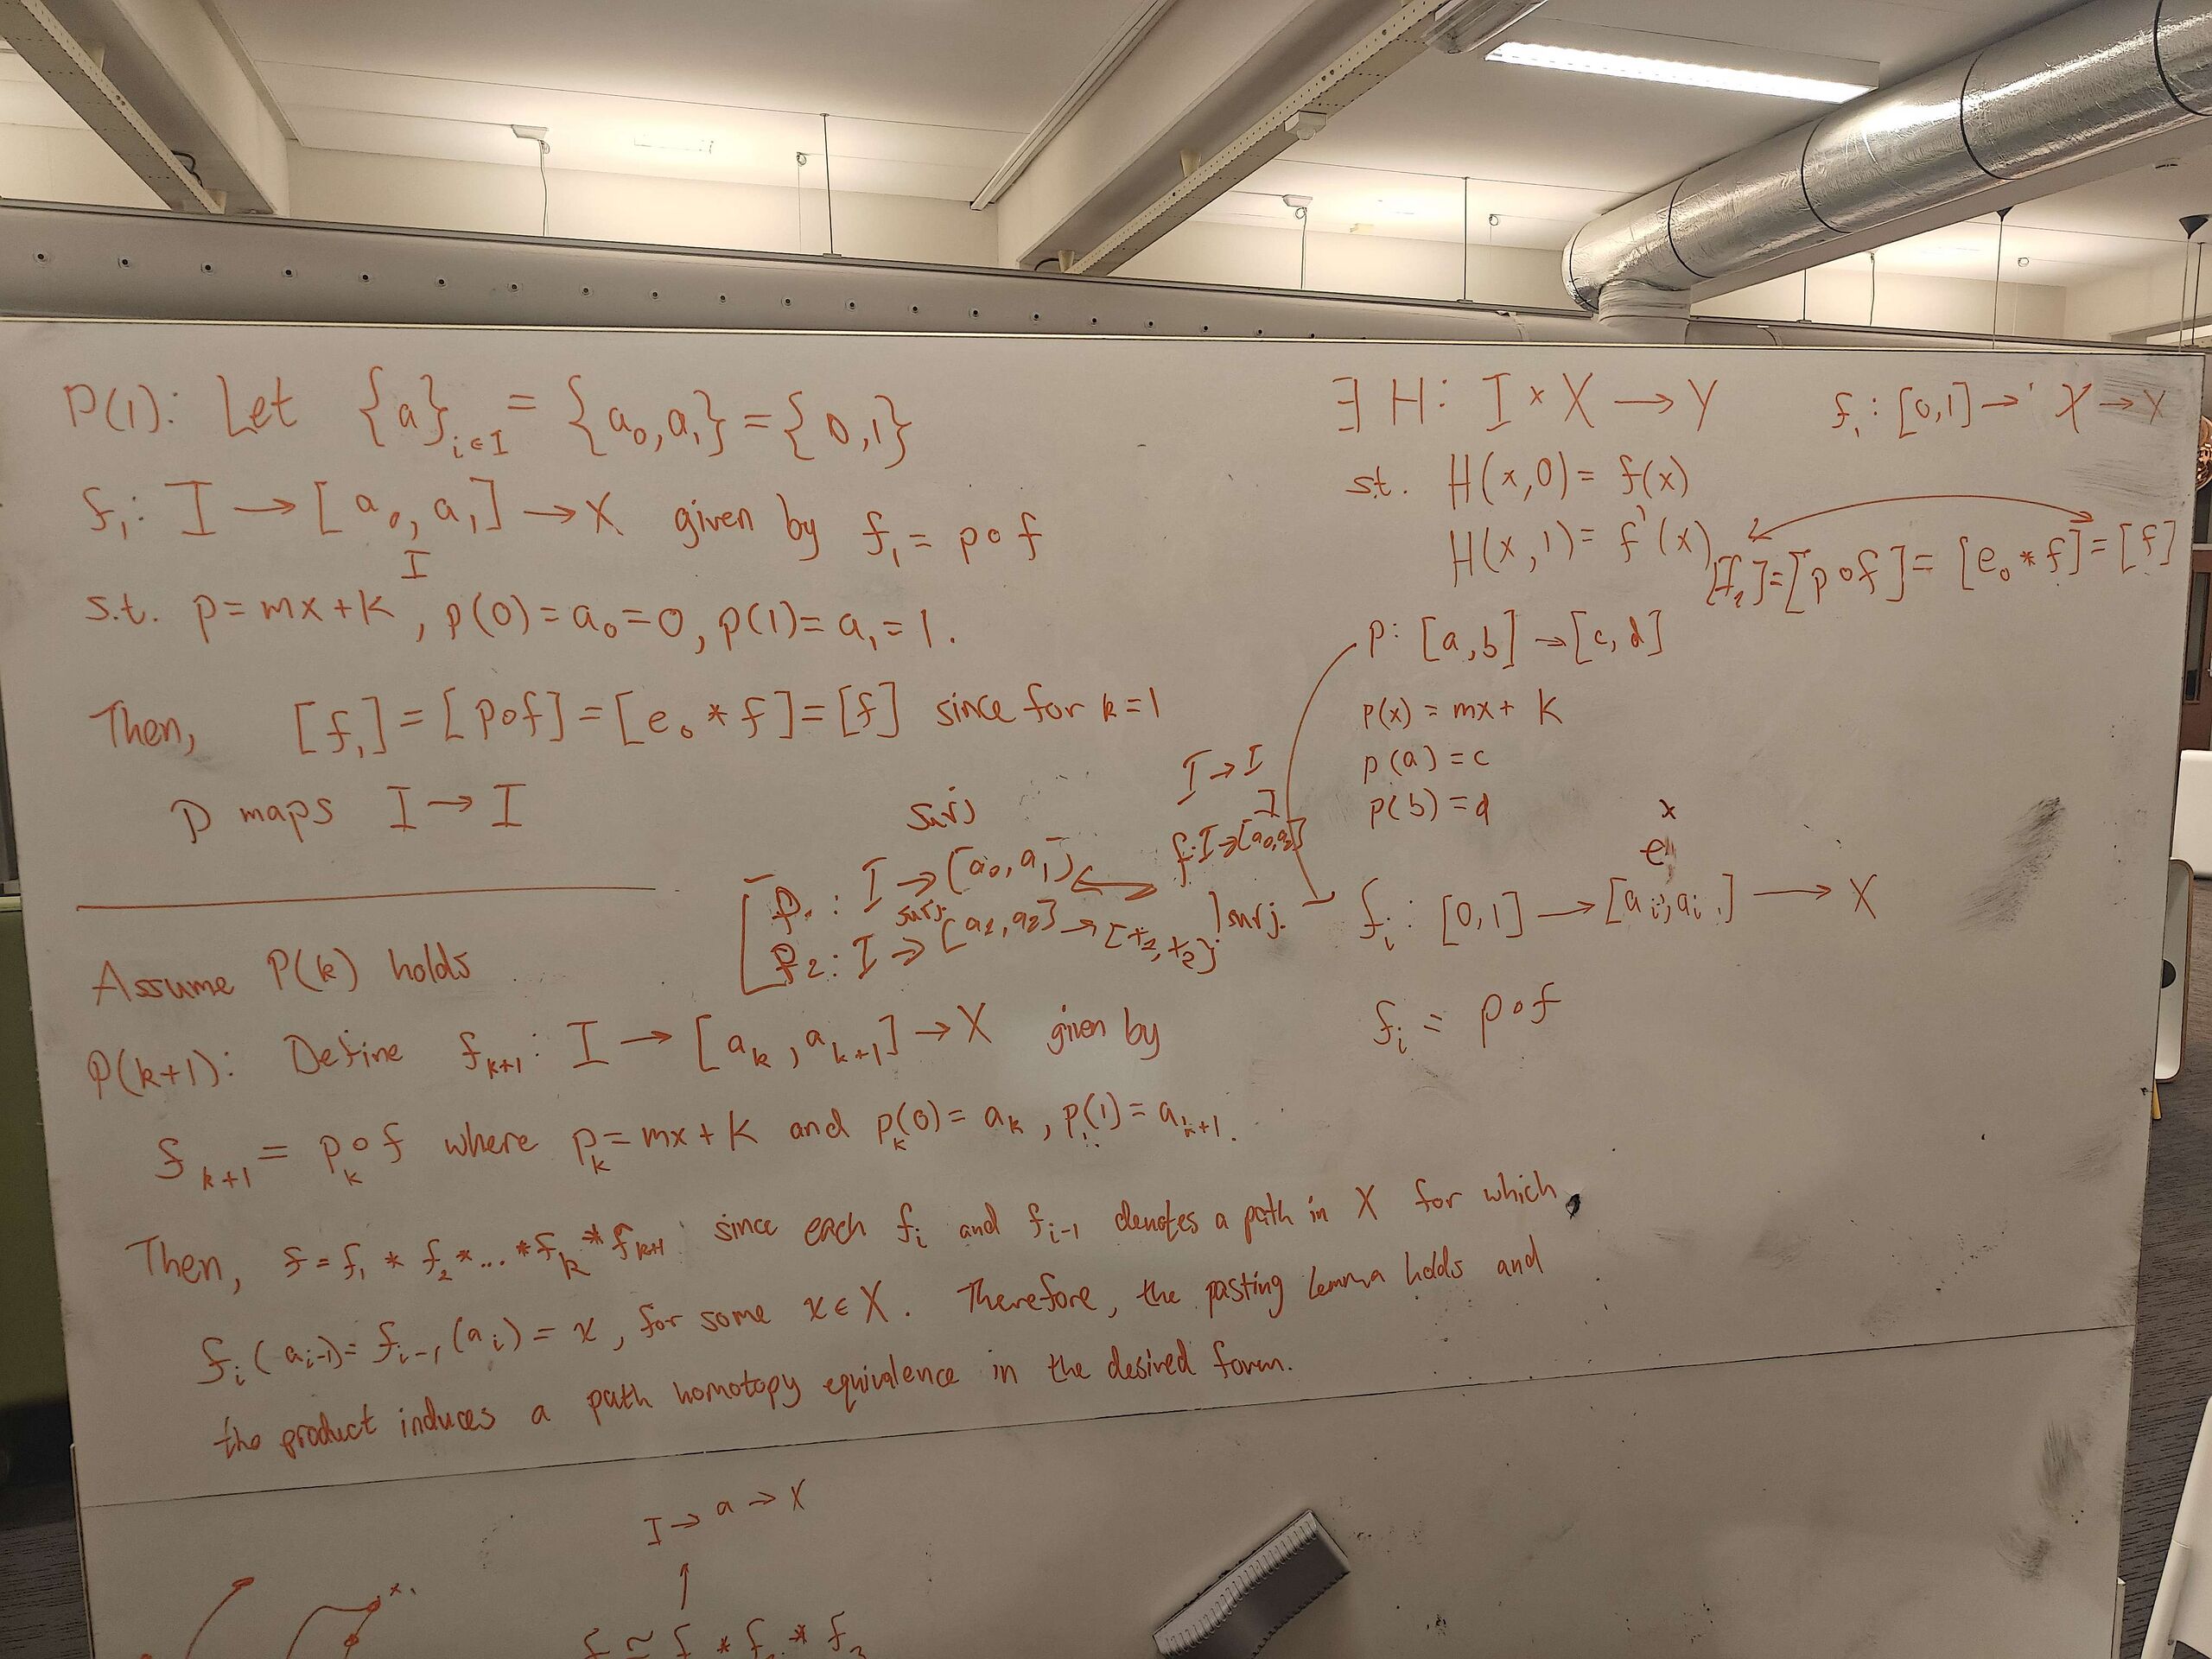 P(1): Let {a}_{i∈I} = {a₀, a₁} = {0,1}
f₁: I → [a₀, a₁] → X given by f₁ = p∘f
I
s.t. p = mx+k, p(0) = a₀ = 0, p(1) = a₁ = 1.
Then, [f₁] = [p∘f] = [e₀ * f] = [f] since for k=1
p maps I → I
Assume P(k) holds
P(k+1): Define f_{k+1}: I → [a_k, a_{k+1}] → X given by
f_{k+1} = p_k∘f where p_k = mx+k and p_k(0) = a_k, p(1) = a_{k+1}.
Then, f = f₁ * f₂ * ... * f_k * f_{k+1} since each f_i and f_{i-1} denotes a path in X for which
f_i(a_{i-1}) = f_{i-1}(a_i) = x, for some x∈X. Therefore, the pasting lemma holds and
the product induces a path homotopy equivalence in the desired form.
surj
p₁: I → [a₀, a₁]
surj.
p₂: I → [a₁, a₂] →
] surj.
I → I
I
f: I →
∃ H: I × X → Y
s.t. H(x,0) = f(x)
H(x,1) = f'(x)
f₁: [0,1] → X → Y
[f₁] = [p∘f] = [e₀ * f] = [f]
p: [a,b] → [c,d]
p(x) = mx + k
p(a) = c
p(b) = d
x
e
f_i: [0,1] → [a_i, a_i] → X
f_i = p∘f
I → a → X
↑
f ≃ f * f₂ * f₃
x₁